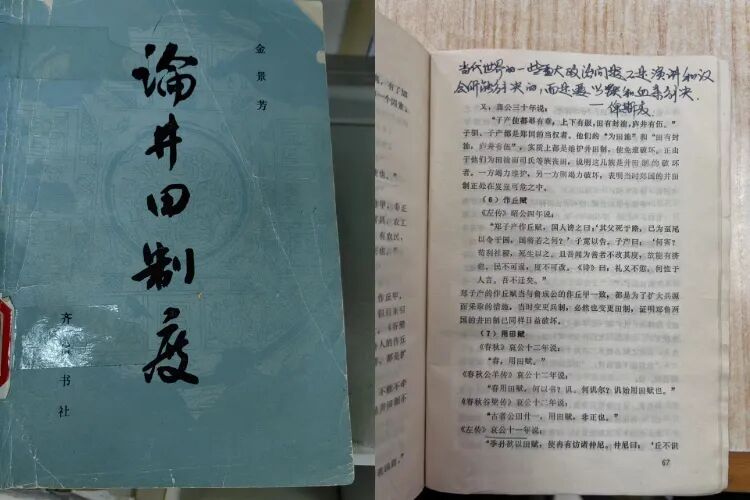 金景芳
論井田制度
齐鲁书社
当代世界的一些重大政治问题,不是演讲和议
会所能解决的,而是要以铁和血来解决
——俾斯麦
又,襄公三十年说:
“子产使都鄙有章,上下有服,田有封洫,庐井有伍。”
子驷、子产都是郑国的当权者。他们的“为田洫”和“田有封
洫,庐井有伍”,实质上都是维护井田制,使免遭破坏。正由
于他们为田洫而司氏等族丧田,说明这几族是井田制的破坏
者。一方竭力维护,另一方则竭力破坏,表明当时郑国的井田
制正处在岌岌可危之中。
(6)作丘赋
《左传》昭公四年说:
“郑子产作丘赋,国人谤之曰:‘其父死于路,已为虿尾
以令于国,国将若之何?’子宽以告。子产曰:‘何害?
苟利社稷,死生以之。且吾闻为善者不改其度,故能有济
也。民不可逞,度不可改。《诗》曰:礼义不愆,何恤于
人言。吾不迁矣。’”
郑子产的作丘赋当与鲁成公的作丘甲一致,都是为了扩大兵源
而采取的措施,当时变更兵制,必然也变更田制,证明郑鲁两
国的井田制已同样日益破坏。
(7)用田赋
《春秋》哀公十二年说:
“春,用田赋。”
《春秋公羊传》哀公十二年说:
“春用田赋,何以书?讥。何讥尔?讥始用田赋也。”
《春秋谷梁传》哀公十二年说:
“古者公田什一,用田赋,非正也。”
《左传》哀公十一年说:
“季孙欲以田赋,使冉有访诸仲尼。仲尼曰:‘丘不识
67